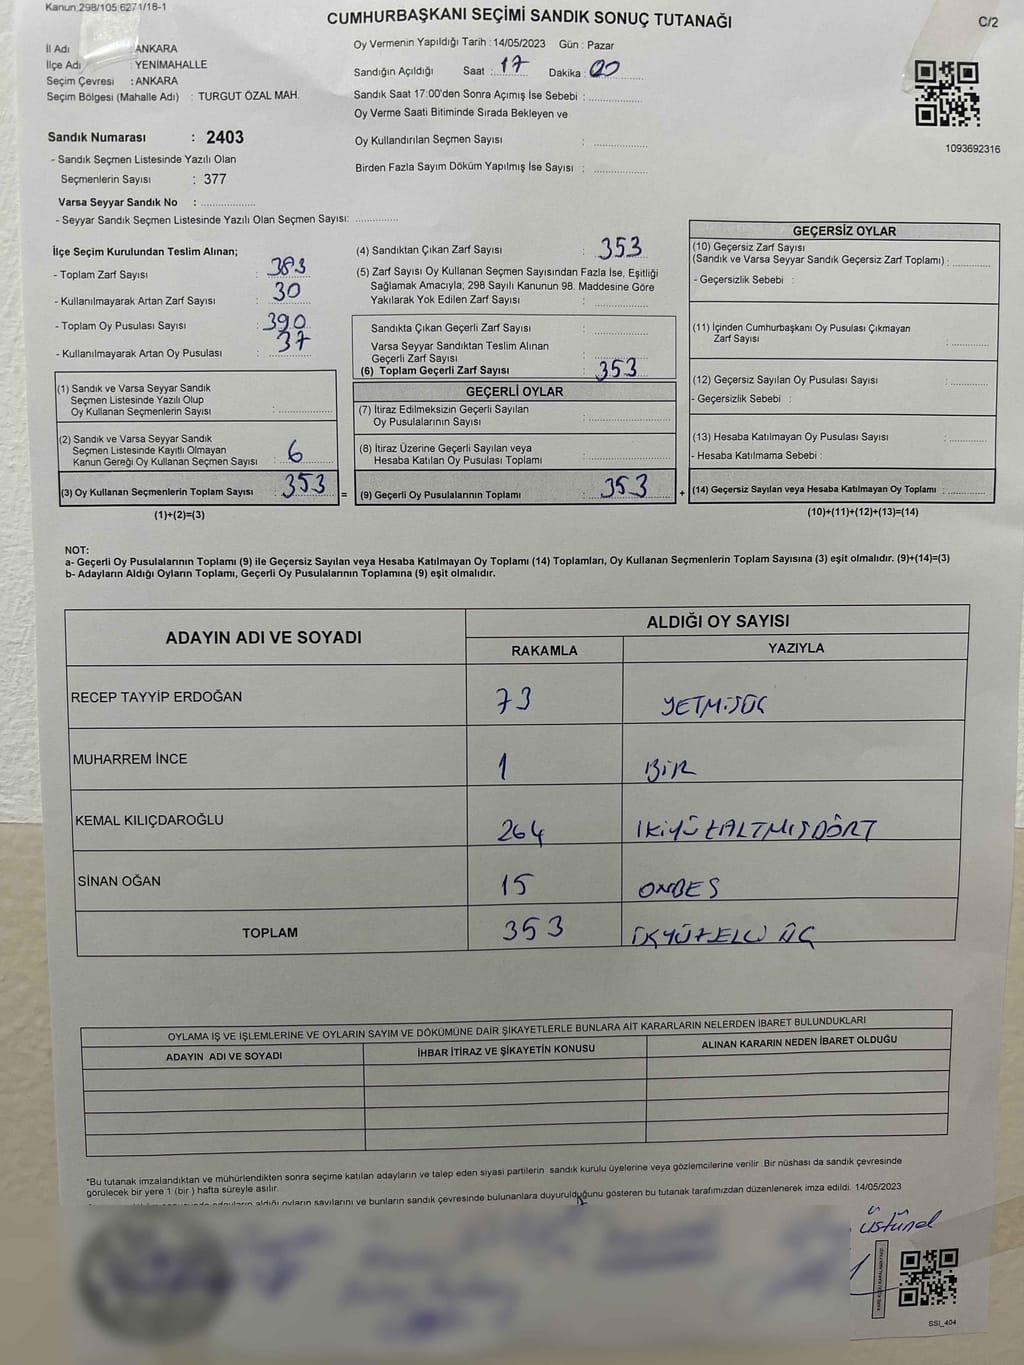 Kanun:298/105:6271/18-1
CUMHURBAŞKANI SEÇİMİ SANDIK SONUÇ TUTANAĞI
C/2
İl Adı ANKARA
İlçe Adı YENİMAHALLE
Seçim Çevresi : ANKARA
Seçim Bölgesi (Mahalle Adı) : TURGUT ÖZAL MAH.
Sandık Numarası : 2403
- Sandık Seçmen Listesinde Yazılı Olan
Seçmenlerin Sayısı : 377
Varsa Seyyar Sandık No :
- Seyyar Sandık Seçmen Listesinde Yazılı Olan Seçmen Sayısı:
Oy Vermenin Yapıldığı Tarih : 14/05/2023 Gün : Pazar
Sandığın Açıldığı Saat : 17 Dakika : 00
Sandık Saat 17:00'den Sonra Açımış İse Sebebi :
Oy Verme Saati Bitiminde Sırada Bekleyen ve
Oy Kullandırılan Seçmen Sayısı :
Birden Fazla Sayım Döküm Yapılmış İse Sayısı :
1093692316
İlçe Seçim Kurulundan Teslim Alınan;
- Toplam Zarf Sayısı : 383
- Kullanılmayarak Artan Zarf Sayısı : 30
- Toplam Oy Pusulası Sayısı : 390
- Kullanılmayarak Artan Oy Pusulası : 37
(1) Sandık ve Varsa Seyyar Sandık
Seçmen Listesinde Yazılı Olup
Oy Kullanan Seçmenlerin Sayısı :
(2) Sandık ve Varsa Seyyar Sandık
Seçmen Listesinde Kayıtlı Olmayan
Kanun Gereği Oy Kullanan Seçmen Sayısı : 6
(3) Oy Kullanan Seçmenlerin Toplam Sayısı : 353 =
(1)+(2)=(3)
(4) Sandıktan Çıkan Zarf Sayısı : 353
(5) Zarf Sayısı Oy Kullanan Seçmen Sayısından Fazla İse, Eşitliği
Sağlamak Amacıyla; 298 Sayılı Kanunun 98. Maddesine Göre
Yakılarak Yok Edilen Zarf Sayısı :
Sandıkta Çıkan Geçerli Zarf Sayısı :
Varsa Seyyar Sandıktan Teslim Alınan
Geçerli Zarf Sayısı :
(6) Toplam Geçerli Zarf Sayısı : 353
GEÇERLİ OYLAR
(7) İtiraz Edilmeksizin Geçerli Sayılan
Oy Pusulalarının Sayısı :
(8) İtiraz Üzerine Geçerli Sayılan veya
Hesaba Katılan Oy Pusulası Toplamı :
(9) Geçerli Oy Pusulalarının Toplamı : 353 +
GEÇERSİZ OYLAR
(10) Geçersiz Zarf Sayısı
(Sandık ve Varsa Seyyar Sandık Geçersiz Zarf Toplamı) :
- Geçersizlik Sebebi :
(11) İçinden Cumhurbaşkanı Oy Pusulası Çıkmayan
Zarf Sayısı :
(12) Geçersiz Sayılan Oy Pusulası Sayısı :
- Geçersizlik Sebebi :
(13) Hesaba Katılmayan Oy Pusulası Sayısı :
- Hesaba Katılmama Sebebi :
(14) Geçersiz Sayılan veya Hesaba Katılmayan Oy Toplamı :
(10)+(11)+(12)+(13)=(14)
NOT:
a- Geçerli Oy Pusulalarının Toplamı (9) ile Geçersiz Sayılan veya Hesaba Katılmayan Oy Toplamı (14) Toplamları, Oy Kullanan Seçmenlerin Toplam Sayısına (3) eşit olmalıdır. (9)+(14)=(3)
b- Adayların Aldığı Oyların Toplamı, Geçerli Oy Pusulalarının Toplamına (9) eşit olmalıdır.
ADAYIN ADI VE SOYADI ALDIĞI OY SAYISI
RAKAMLA YAZIYLA
RECEP TAYYİP ERDOĞAN 73 YETMİŞÜÇ
MUHARREM İNCE 1 BİR
KEMAL KILIÇDAROĞLU 264 İKİYÜZALTMIŞDÖRT
SİNAN OĞAN 15 ONBEŞ
TOPLAM 353 ÜÇYÜZELLİ ÜÇ
OYLAMA İŞ VE İŞLEMLERİNE VE OYLARIN SAYIM VE DÖKÜMÜNE DAİR ŞİKAYETLERLE BUNLARA AİT KARARLARIN NELERDEN İBARET BULUNDUKLARI
ADAYIN ADI VE SOYADI İHBAR İTİRAZ VE ŞİKAYETİN KONUSU ALINAN KARARIN NEDEN İBARET OLDUĞU
*Bu tutanak imzalandıktan ve mühürlendikten sonra seçime katılan adayların ve talep eden siyasi partilerin sandık kurulu üyelerine veya gözlemcilerine verilir. Bir nüshası da sandık çevresinde
görülecek bir yere 1 (bir) hafta süreyle asılır.
adayların aldığı oyların sayılarını ve bunların sandık çevresinde bulunanlara duyurulduğunu gösteren bu tutanak tarafımızdan düzenlenerek imza edildi. 14/05/2023
üstünel
SSI_404